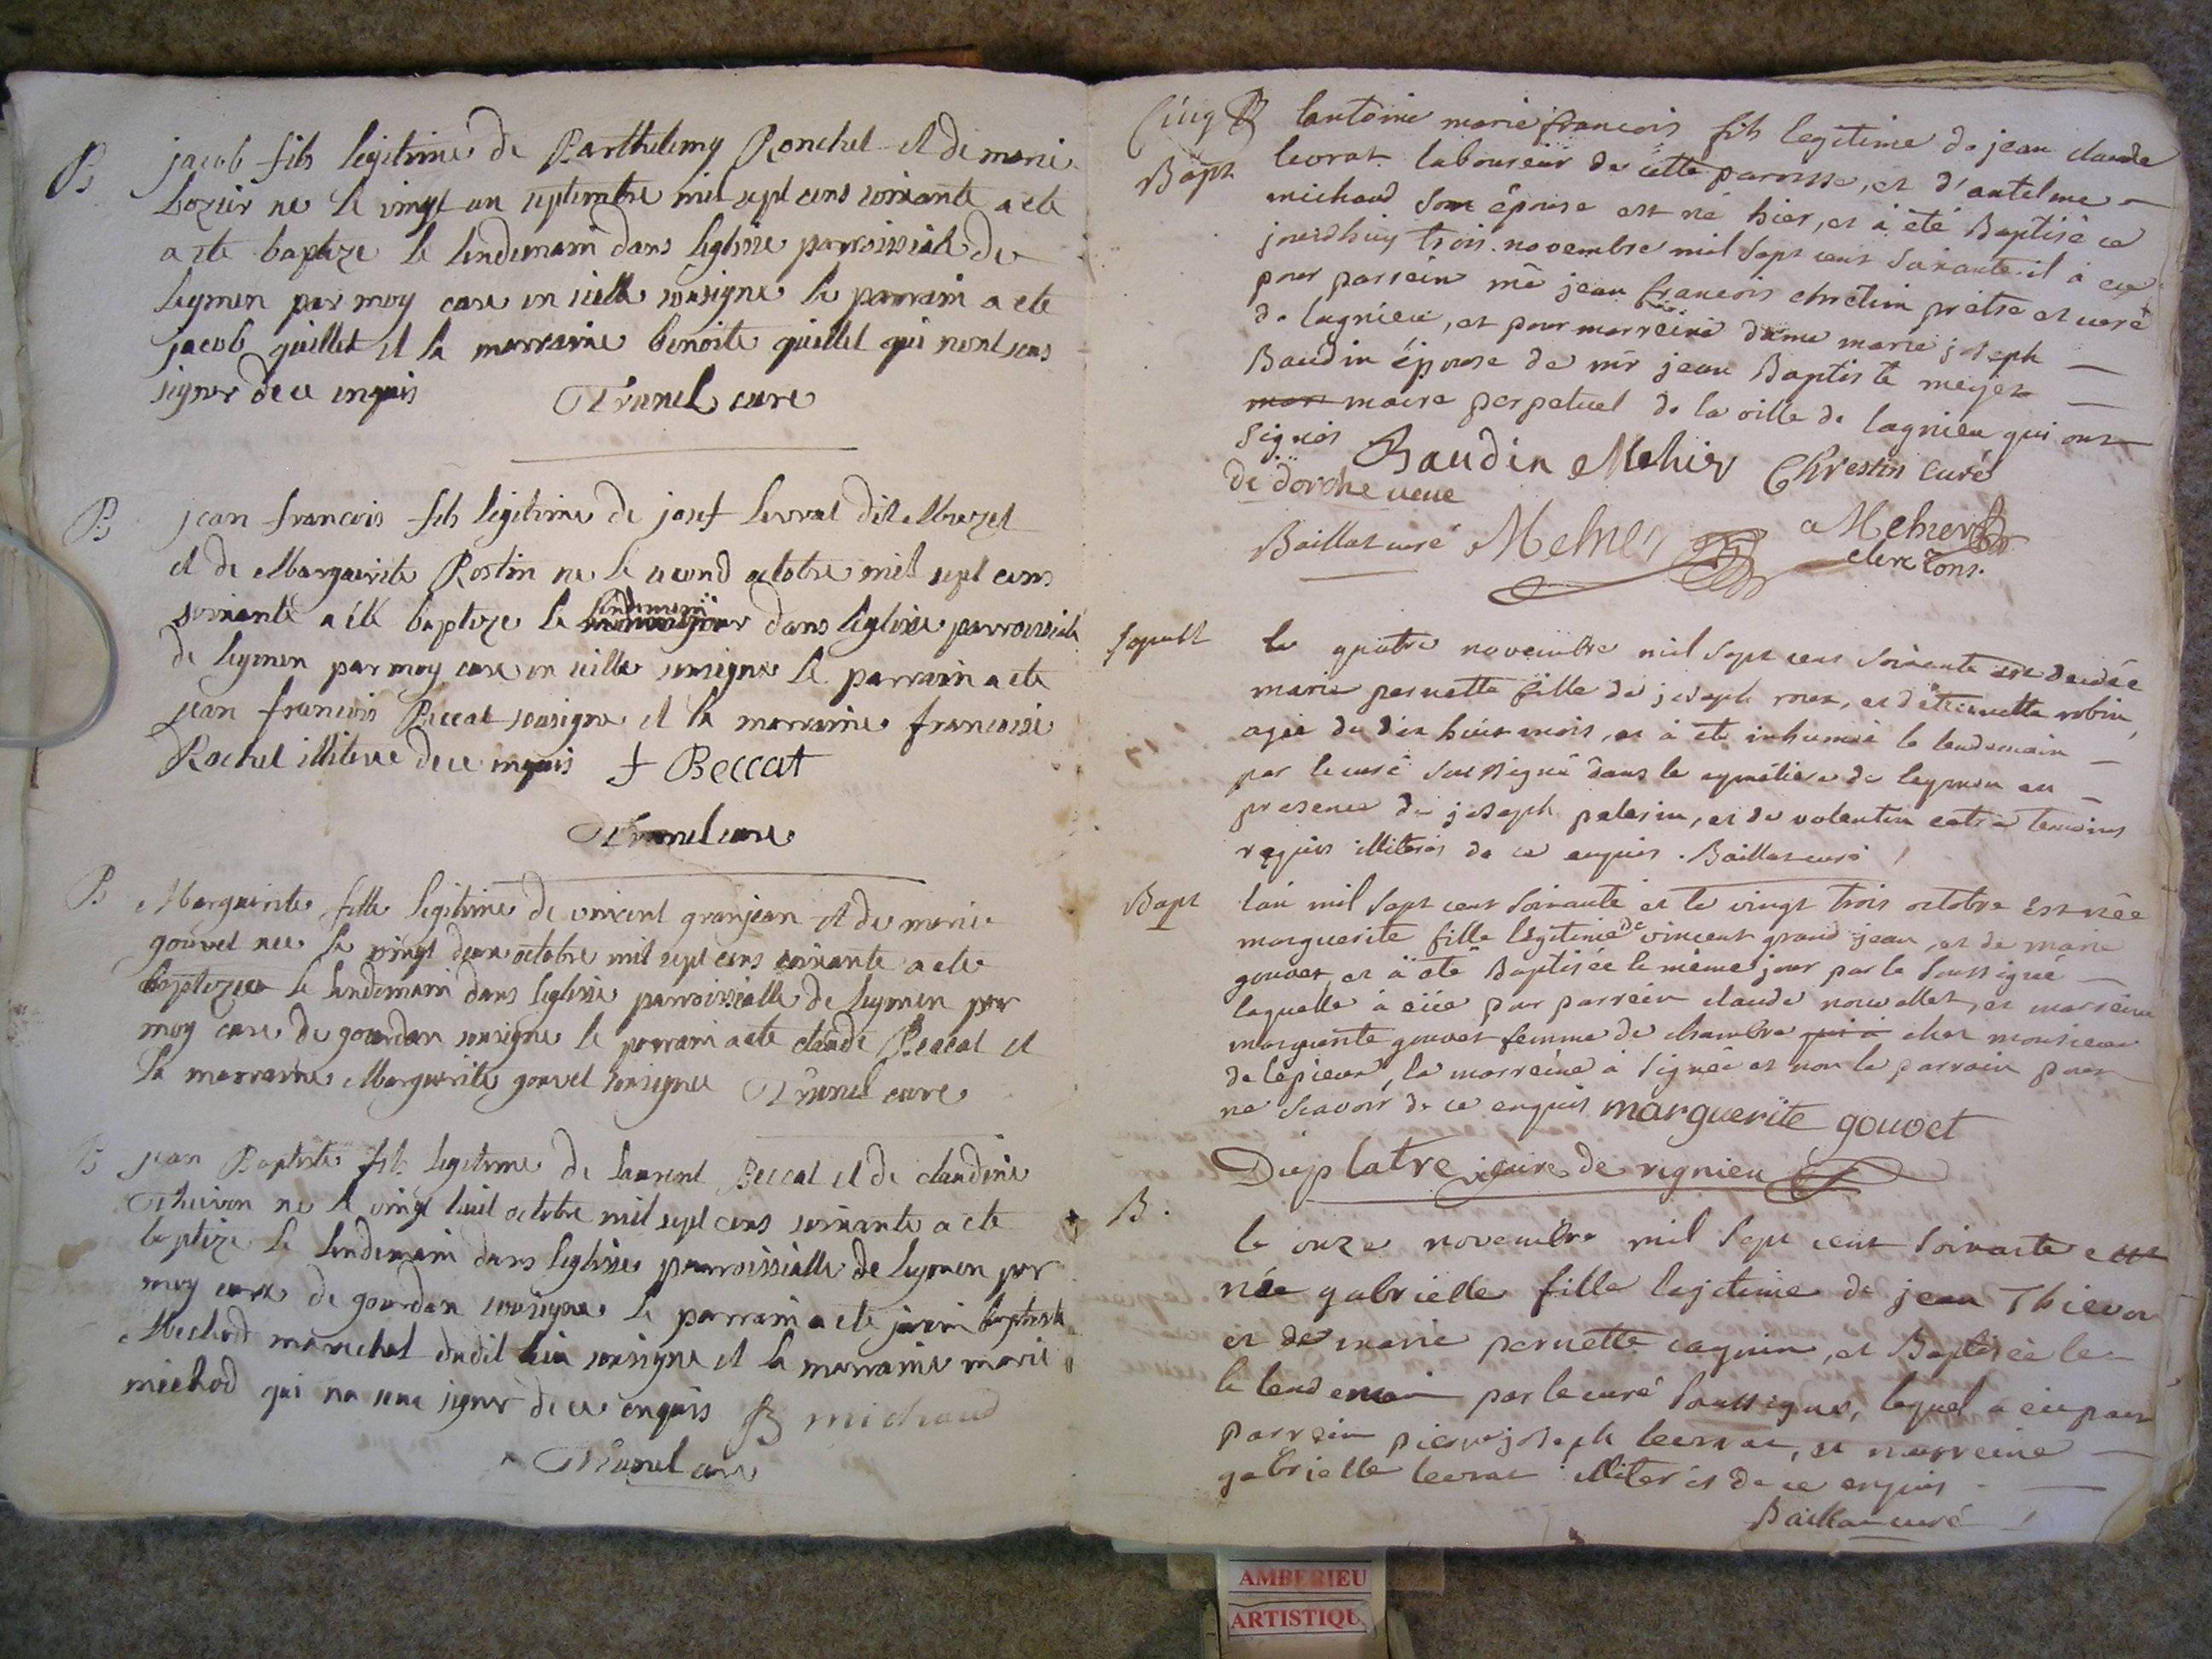 B
jacob fils legitime de Barthelemy Ronchet et de marie
Lozier ne le vingt un septembre mil sept cens soixante a ete
a ete baptize le lendemain dans leglisse parroissiale de
leymen par moy cure en icelle sousigne le parrain a ete
jacob guillet et la marraine benoite guillet qui nont sceus
signer de ce enquis Trunel cure
B
jean francois fils legitime de josef Levrat dit
et de Marguerite Rostin ne le second octobre mil sept cens
soixante a été baptize le lendemain dans leglisse parroissiale
de leymen par moy cure en icelle sousigne le parrain a ete
jean francois Beccat sousigne et la marraine francoise
Rochet illiteree de ce enquis f Beccat
Trunel cure
B
Marguerite fille legitime de vincent granjean et de marie
gouvet nee le vingt deux octobre mil sept cens soixante a ete
baptizee le lendemain dans leglisse parroissialle de leymen par
moy cure de gourdan sousigne le parrain a ete claude Beccat et
la marraine Marguerite gouvet sousignee Trunel cure
B
jean Baptiste fils legitime de laurent Beccat et de claudine
Thevion ne le vingt huit octobre mil sept cens soixante a ete
baptize le lendemain dans leglisse parroissialle de leymen par
moy cure de gourdan sousigne le parrain a ete jean baptiste
Mechod marechal dudit lieu sousigne et la marraine marie
miechod qui na sceue signer de ce enquis JB michaud
Trunel cure
Cinq B
Bapt
antoine marie francois fils legitime de jean claude
levrat laboureur de cette paroisse, et d'antelme
michaud son épouse est né hier, et à été Baptisé ce
jourdhuy trois novembre mil sept cent soixante il à eu
pour parrein mè jean francois chretin prêtre et curé
de lagnieu, et pour marreine dame marie joseph
Baudin épouse de mr jean Baptiste meyer
mari maire perpetuel de la ville de lagnieu qui ont
signés Baudin Mehier Chrestin curé
de dorche veuve
Baillat curé Mehier Mehier
clerc tons.
sepult
le quatre novembre mil sept cent soixante est decedée
marie pernette fille de joseph roux, et d'étiennette robin,
agée de dix huit mois, et à été inhumée le lendemain
par le curé soussigné dans le cymétiere de leymen en
presence de joseph palerin, et de valentin temoins
requis illiterés de ce enquis. Baillat curé
Bapt
lan mil sept cent soixante et le vingt trois octobre est née
marguerite fille légitime de vincent grand jean, et de marie
gouvet, et à été Baptisée le même jour par le soussigné
laquelle à eüe pour parrein claude et marreine
marguerite gouvet femme de chambre qui à chez monsieur
de lépieux, la marreine à signée et non le parrain pour
ne scavoir de ce enquis marguerite gouvet
Duplatre vicaire de rignieu
B.
le onze novembre mil sept cent soixante est
née gabrielle fille legitime de jean Thievon
et de marie pernette caguin, et Baptisée le
le lendemain par le curé soussigné, lequel a eu pour
parrein pierre joseph levrat, et marreine
gabrielle levrat illiterés de ce enquis
Baillat curé
AMBERIEU
ARTISTIQU